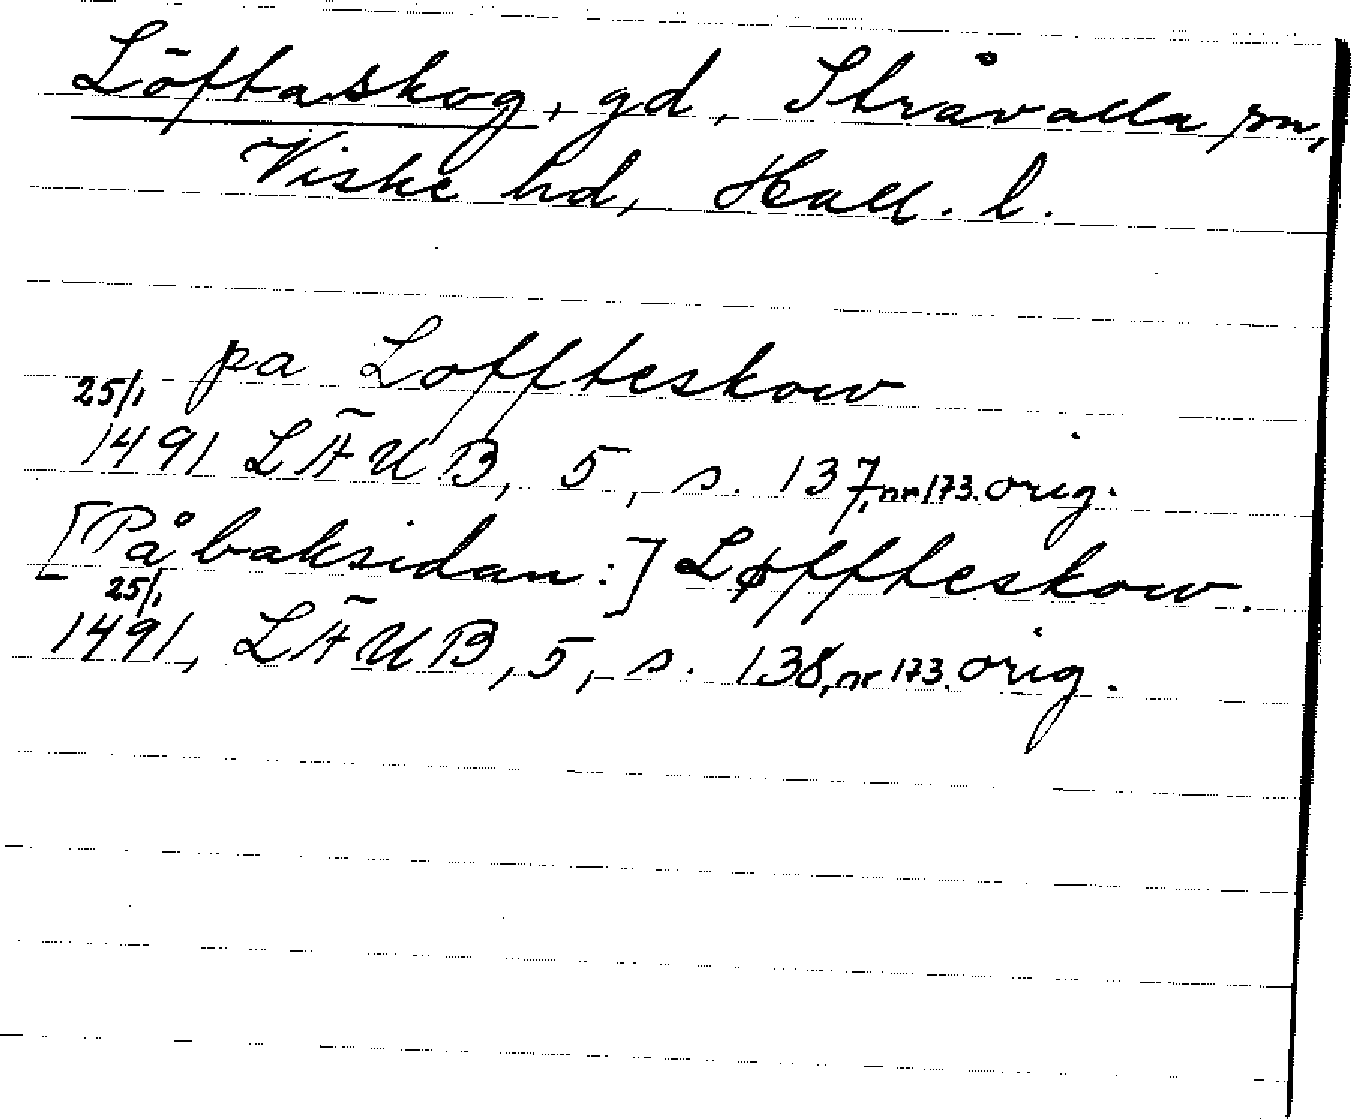 Löftaskog, gd, Stråvalla sn,
Viske hd, Hall. l.
pa Loffteskow
25/1 1491 LÄUB, 5, s. 137, nr 173. orig.
[På baksidan:] Løffteskow.
25/1 1491, LÄUB, 5, s. 138, nr 173. orig.